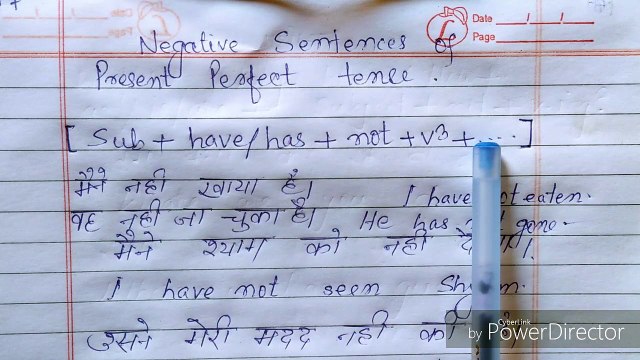 Date
Page
Negative Sentences of
Present Perfect tense.
[ Sub + have/has + not + v3 + .... ]
मैंने नहीं खाया है। I have eaten.
वह नहीं जा चुका है। He has gone.
मैंने श्याम को नहीं
I have not seen
उसने मेरी मदद नहीं की
CyberLink
by PowerDirector